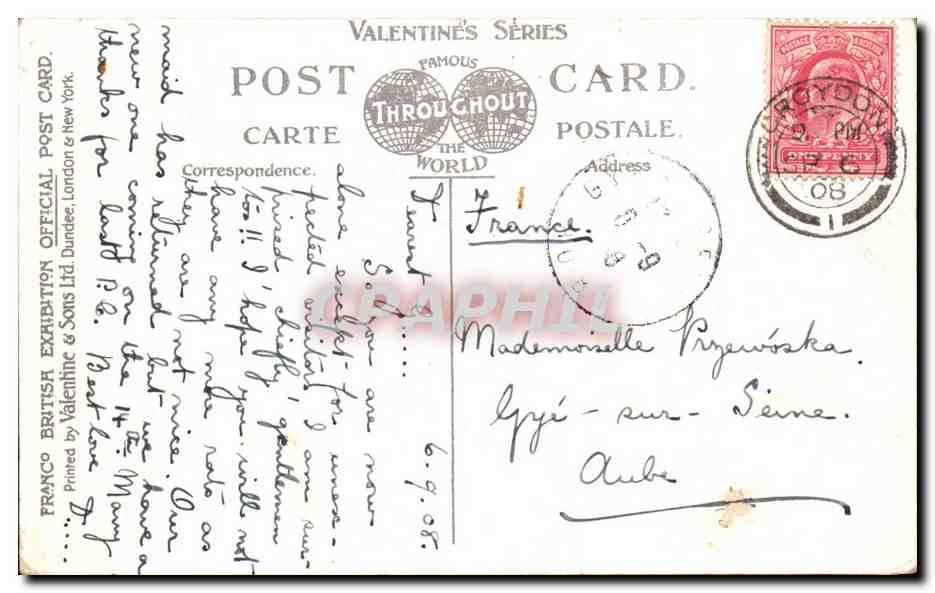 VALENTINE'S SERIES
POST CARD.
FAMOUS
THROUGHOUT
THE
WORLD
CARTE POSTALE.
Correspondence.
Address
FRANCO BRITISH EXHIBITION OFFICIAL POST CARD.
Printed by Valentine & Sons Ltd. Dundee, London & New York.
POSTAGE REVENUE
ONE PENNY
CROYDON
PM
08
1
France.
Mademoiselle Przewóska.
Gyé-sur-Seine.
Aube
6.9.08.
Dearest G.....
So you are now
alone except for unex-
pected visitors. I am sur-
prised, chiefly, gentlemen
too!! I hope you will not
have any more rats as
they are not nice. Our
maid has returned but we have a
new one coming on the 14th. Many
thanks for last P.C. Best love D.....
CPAPHIL